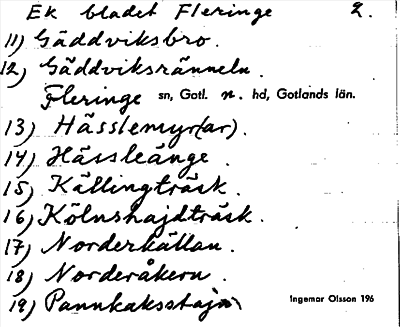 Ek bladet Fleringe 2.
11) Gäddviksbro.
12) Gäddviksränneln.
Fleringe sn, Gotl. n. hd, Gotlands län.
13) Hässlemyr(ar).
14) Hässleänge.
15) Källingträsk.
16) Kölnshajdträsk.
17) Norderkällan.
18) Norderåkern.
19) Pannkaksstajn
Ingemar Olsson 196